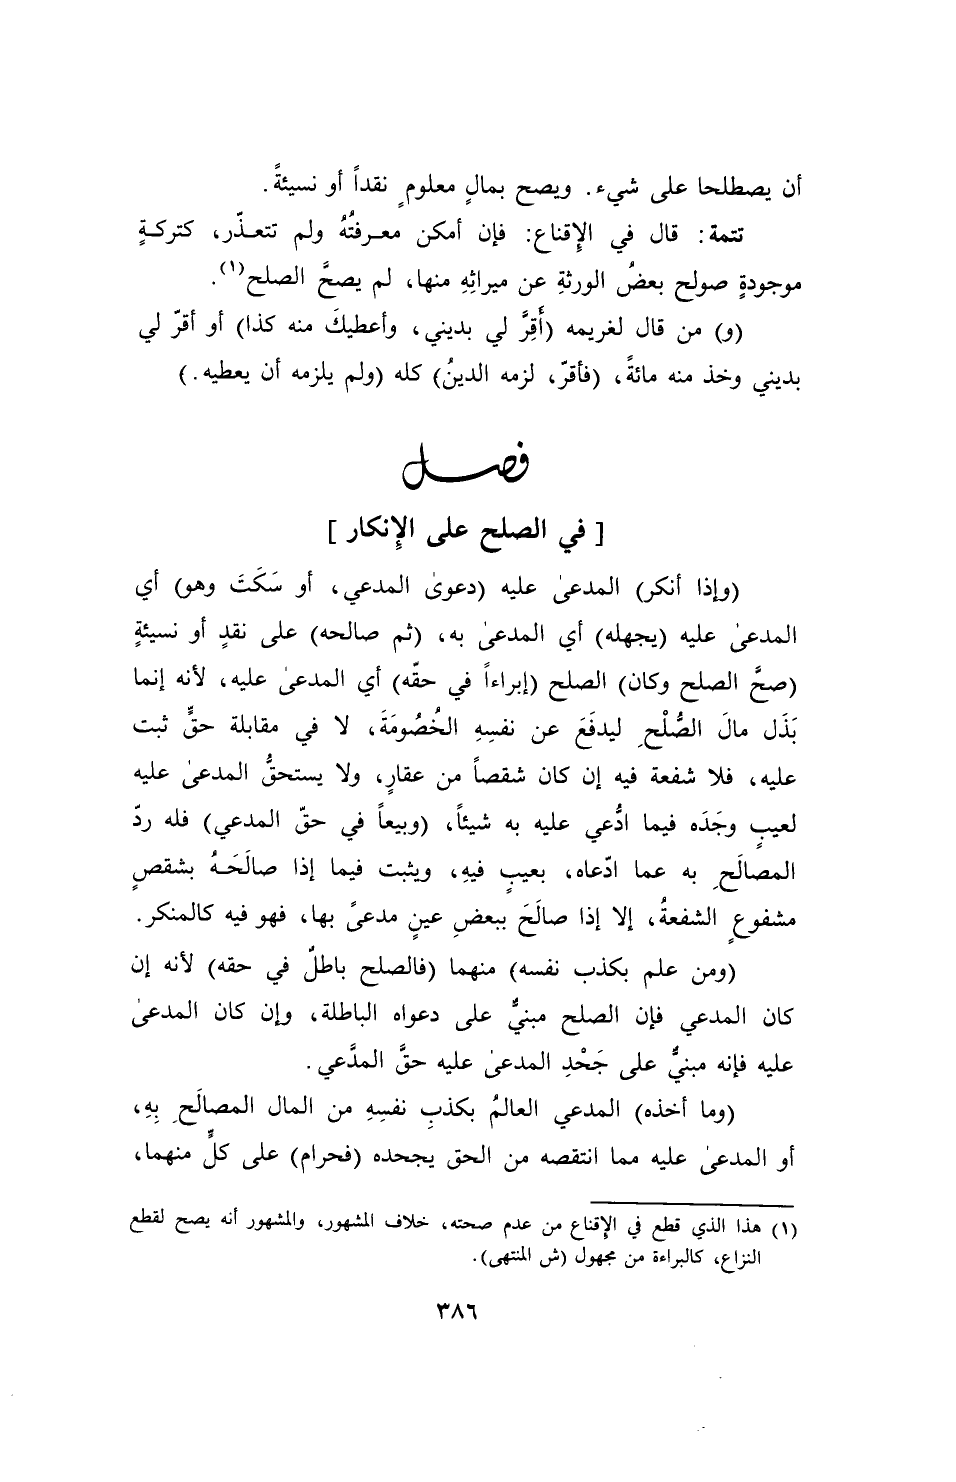 أن يصطلحا على شيء. ويصح بمالٍ معلومٍ نقداً أو نسيئةً.
تتمة: قال في الإقناع: فإن أمكن معرفتُهُ ولم تتعذّر، كتركةٍ
موجودةٍ صولح بعضُ الورثةِ عن ميراثِهِ منها، لم يصحَّ الصلح(١).
(و) من قال لغريمه (أَقِرَّ لي بديني، وأعطيكَ منه كذا) أو أقرّ لي
بديني وخذ منه مائةً، (فأقرّ، لزمه الدينُ) كله (ولم يلزمه أن يعطيه.)
فصل
[ في الصلح على الإنكار ]
(وإذا أنكر) المدعىٰ عليه (دعوىٰ المدعي، أو سَكَتَ وهو) أي
المدعىٰ عليه (يجهله) أي المدعىٰ به، (ثم صالحه) على نقدٍ أو نسيئةٍ
(صحَّ الصلح وكان) الصلح (إبراءاً في حقّه) أي المدعىٰ عليه، لأنه إنما
بَذَل مالَ الصُّلْحِ ليدفَعَ عن نفسِهِ الخُصُومَةَ، لا في مقابلة حقٍّ ثبت
عليه، فلا شفعة فيه إن كان شقصاً من عقارٍ، ولا يستحقُّ المدعىٰ عليه
لعيبٍ وجَدَه فيما ادُّعي عليه به شيئاً، (وبيعاً في حقّ المدعي) فله ردّ
المصالَحِ به عما ادّعاه، بعيبٍ فيهِ، ويثبت فيما إذا صالَحَهُ بشقصٍ
مشفوعٍ الشفعةُ، إلا إذا صالَحَ ببعضِ عينٍ مدعىً بها، فهو فيه كالمنكر.
(ومن علم بكذب نفسه) منهما (فالصلح باطلٌ في حقه) لأنه إن
كان المدعي فإن الصلح مبنيٌّ على دعواه الباطلة، وإن كان المدعىٰ
عليه فإنه مبنيٌّ على جَحْدِ المدعىٰ عليه حقَّ المدَّعي.
(وما أخذه) المدعي العالمُ بكذبِ نفسِهِ من المال المصالَحِ بِهِ،
أو المدعىٰ عليه مما انتقصه من الحق يجحده (فحرام) على كلٍّ منهما،
(١) هذا الذي قطع في الإقناع من عدم صحته، خلاف المشهور، والمشهور أنه يصح لقطع
النزاع، كالبراءة من مجهول (ش المنتهى).
٣٨٦